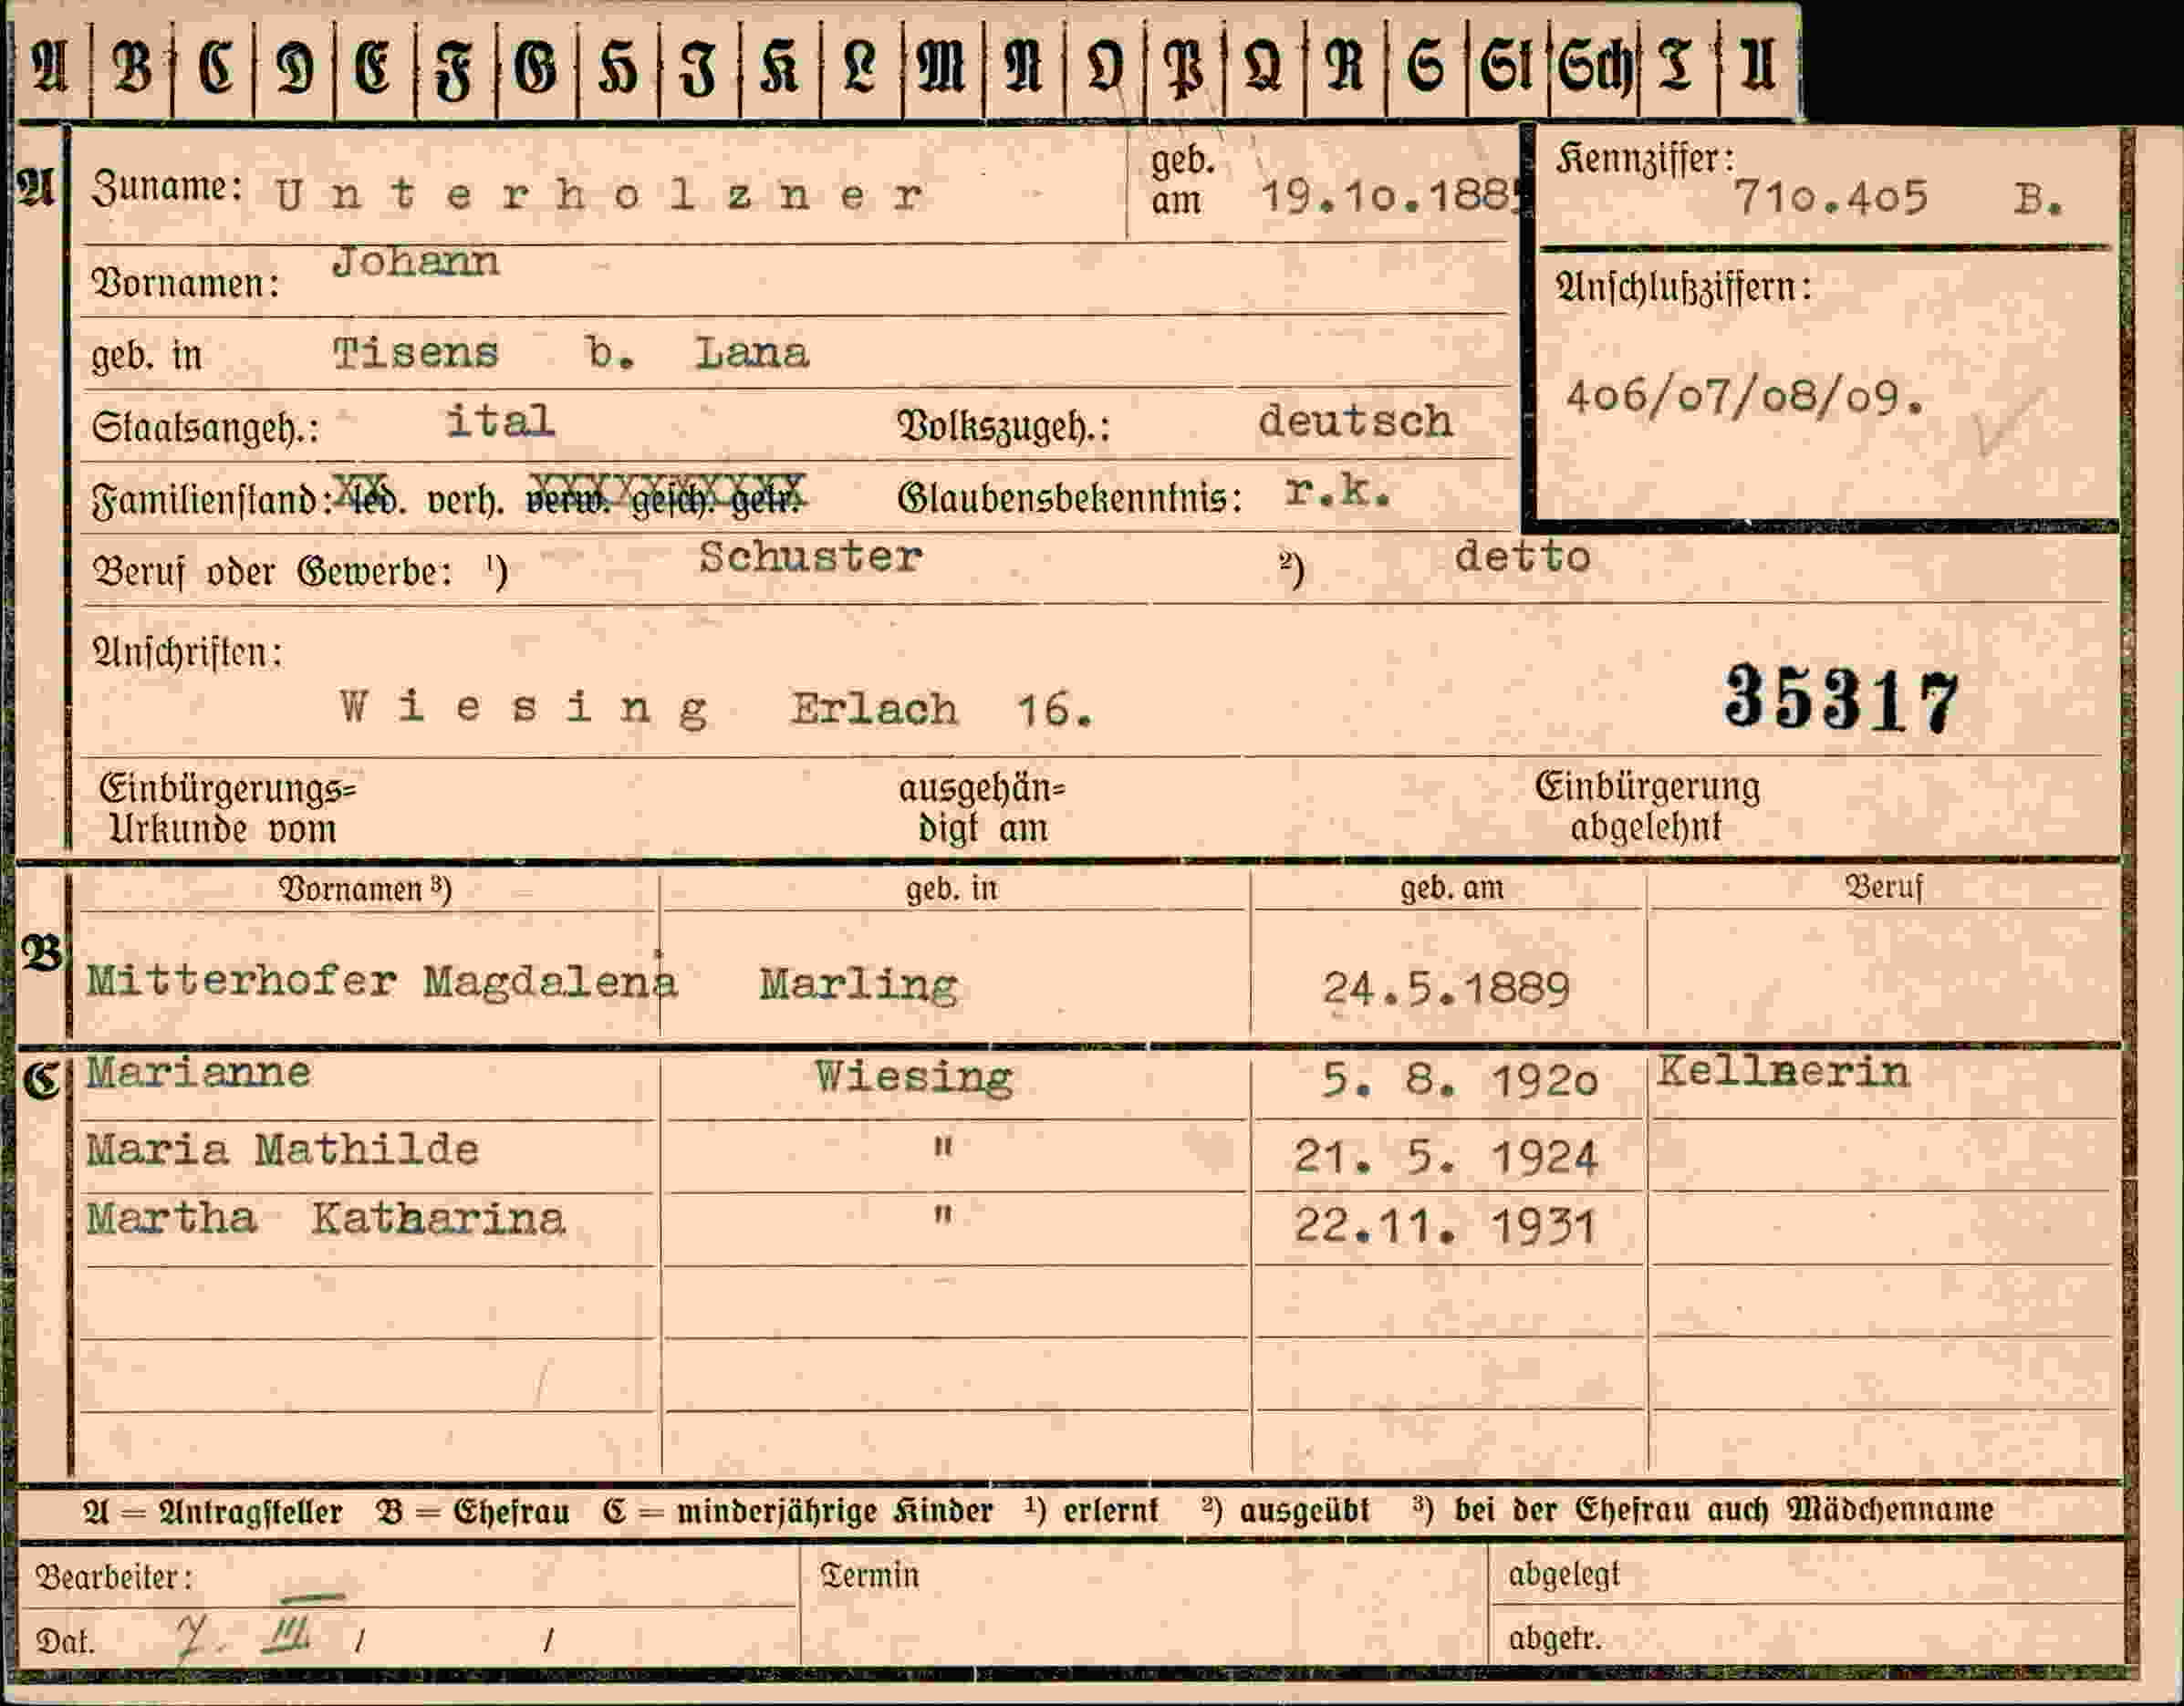 A B C D E F G H I K L M N O P Q R S St Sch T U
A Zuname: Unterholzner geb. am 19.10.188 Kennziffer: 710.405 B.
Vornamen: Johann
Anschlußziffern:
geb. in Tisens b. Lana
406/07/08/09.
Staatsangeh.: ital Volkszugeh.: deutsch
Familienstand: led. verh. verw. gesch. getr. Glaubensbekenntnis: r.k.
Beruf oder Gewerbe: ¹) Schuster ²) detto
Anschriften:
Wiesing Erlach 16. 35317
Einbürgerungs= ausgehän= Einbürgerung
Urkunde vom digt am abgelehnt
Vornamen ³) geb. in geb. am Beruf
B Mitterhofer Magdalena Marling 24.5.1889
C Marianne Wiesing 5. 8. 1920 Kellnerin
Maria Mathilde " 21. 5. 1924
Martha Katharina " 22.11. 1931
A = Antragsteller B = Ehefrau C = minderjährige Kinder ¹) erlernt ²) ausgeübt ³) bei der Ehefrau auch Mädchenname
Bearbeiter: Termin abgelegt
Dat. 7. III / / abgetr.